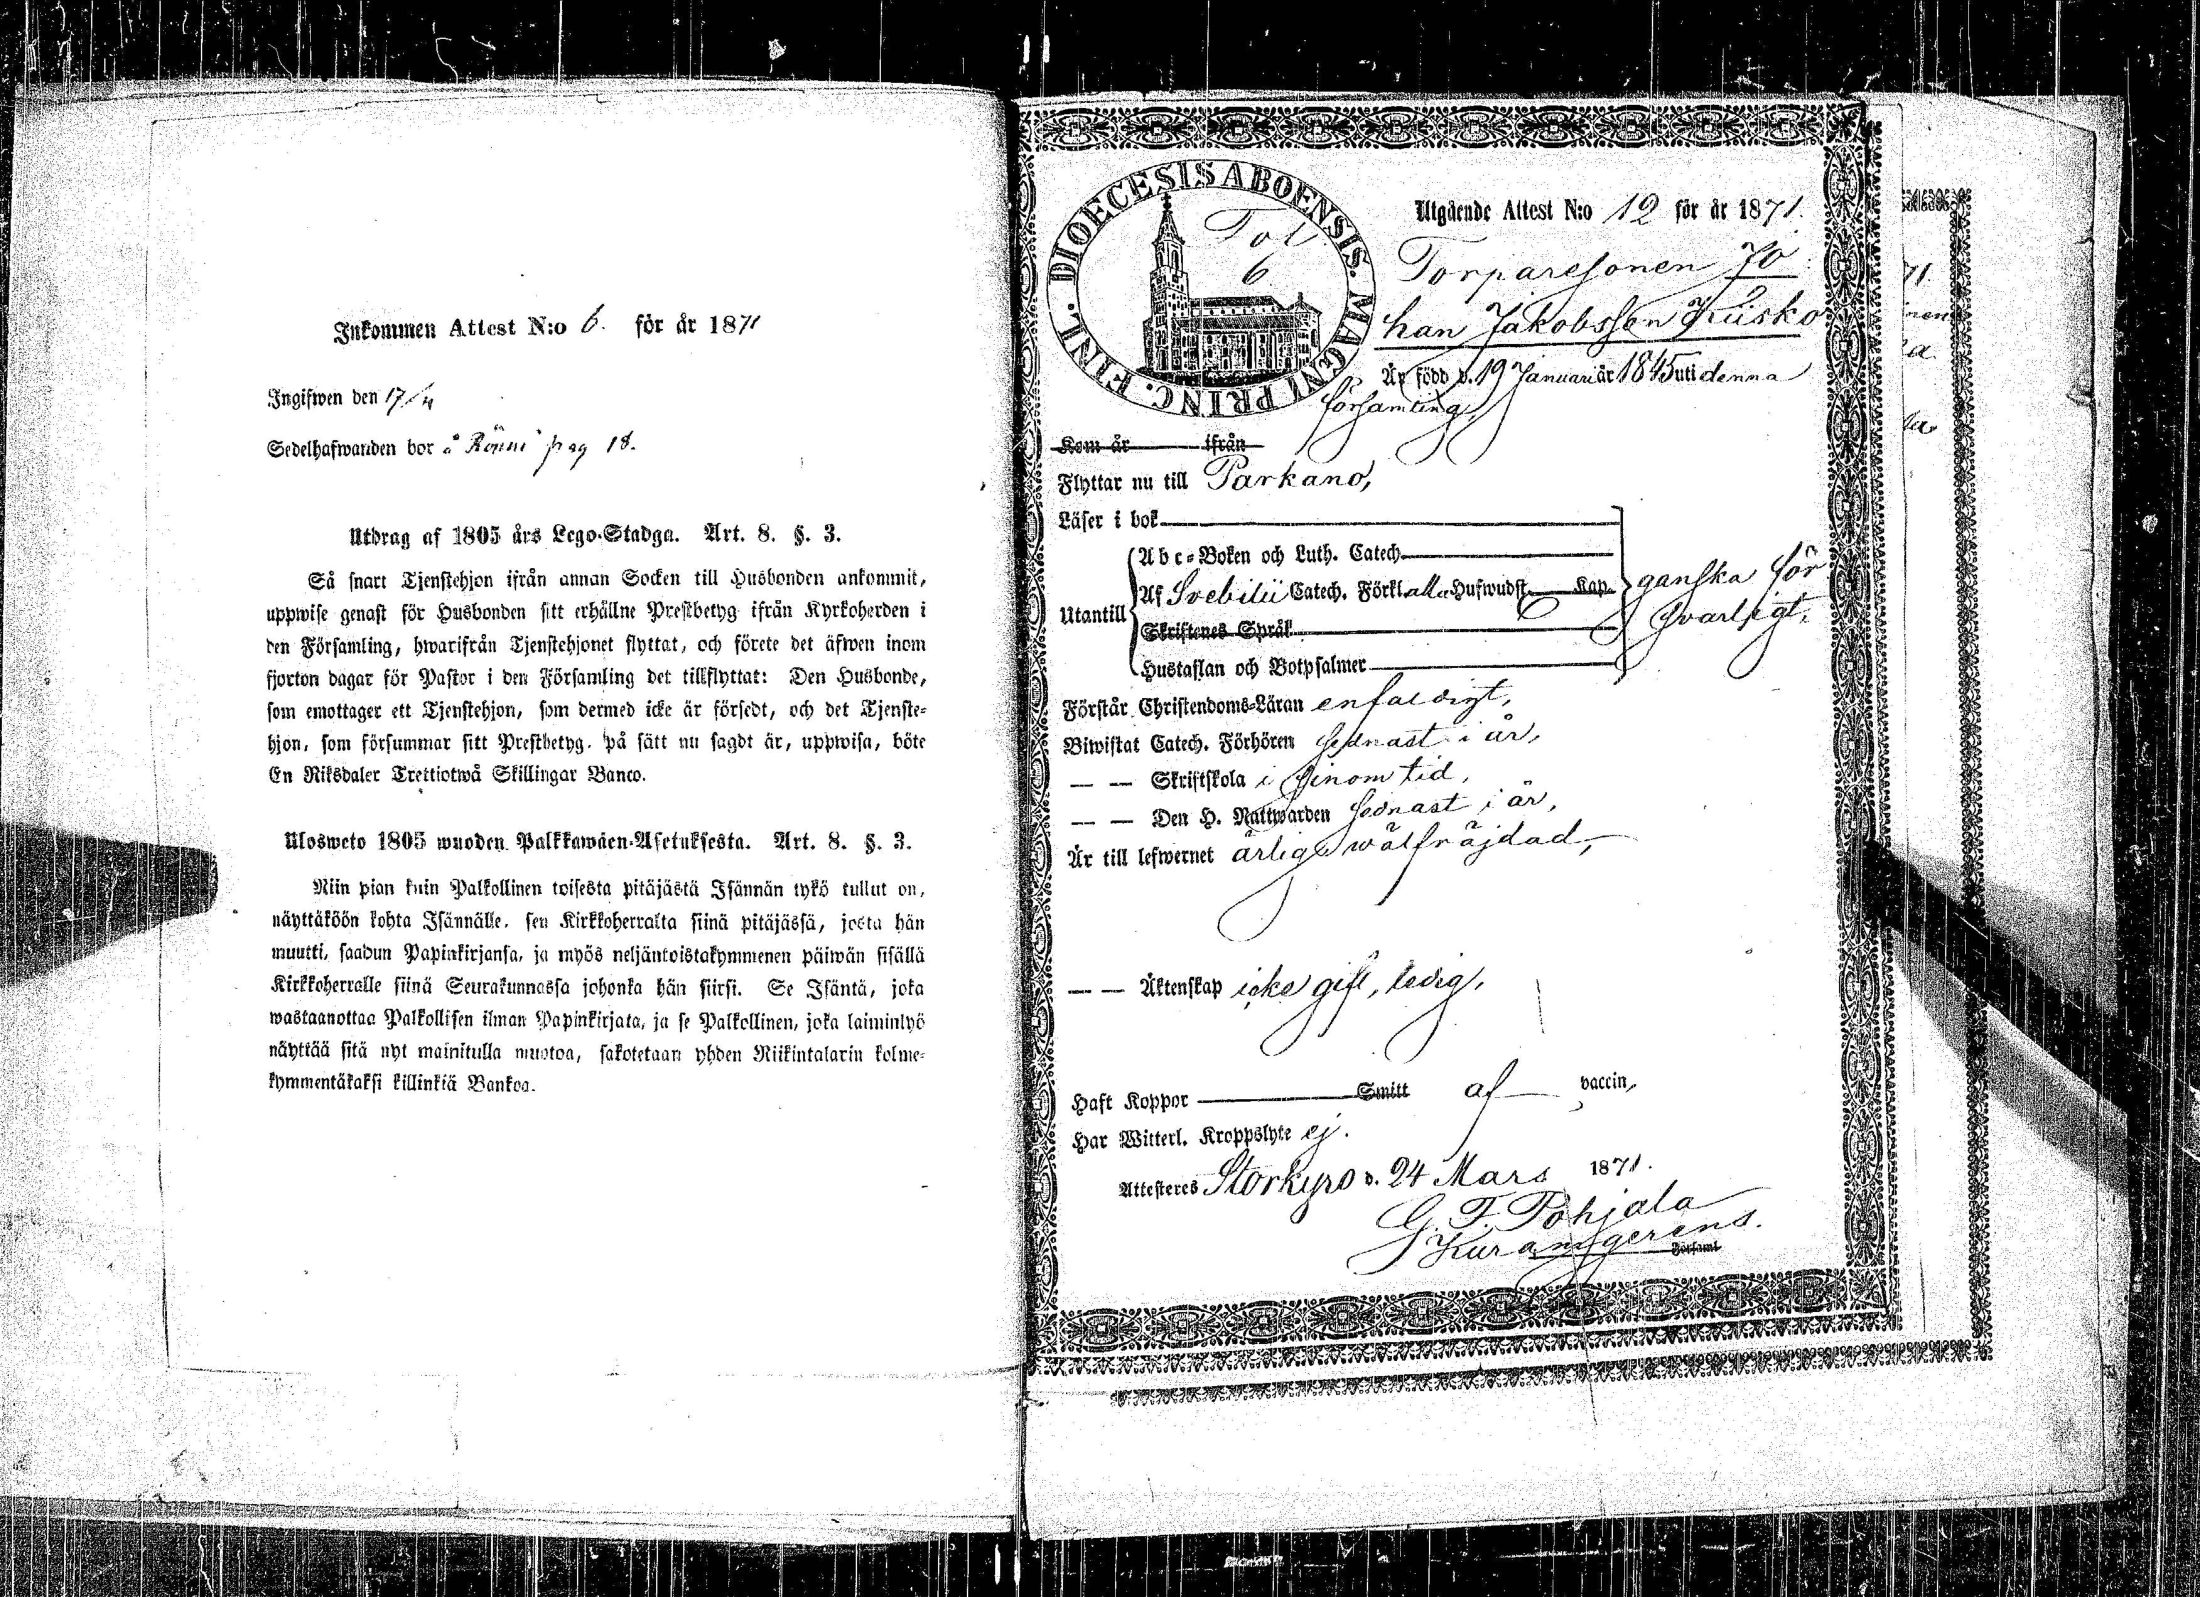 Inkommen Attest N:o 6. för år 1871
Ingifwen den 17/4
Sedelhafwanden bor å Rönni pag 18.
Utdrag af 1805 års Lego-Stadga. Art. 8. §. 3.
Så snart Tjenstehjon ifrån annan Socken till Husbonden ankommit,
uppwise genast för Husbonden sitt erhållne Prestbetyg ifrån Kyrkoherden i
den Församling, hwarifrån Tjenstehjonet flyttat, och förete det äfwen inom
fjorton dagar för Pastor i den Församling det tillflyttat: Den Husbonde,
som emottager ett Tjenstehjon, som dermed icke är försedt, och det Tjenste-
hjon, som försummar sitt Prestbetyg, på sätt nu sagdt är, uppwisa, böte
En Riksdaler Trettiotwå Skillingar Banco.
Ulosweto 1805 wuoden Palkkawäen-Asetuksesta. Art. 8. §. 3.
Niin pian kuin Palkollinen toisesta pitäjästä Isännän tykö tullut on,
näyttäköön kohta Isännälle, sen Kirkkoherralta siinä pitäjässä, josta hän
muutti, saadun Papinkirjansa, ja myös neljäntoistakymmenen päiwän sisällä
Kirkkoherralle siinä Seurakunnassa johonka hän siirsi. Se Isäntä, joka
wastaanottaa Palkollisen ilman Papinkirjata, ja se Palkollinen, joka laiminlyö
näyttää sitä nyt mainitulla muotoa, sakotetaan yhden Riikintalarin kolme-
kymmentäkaksi killinkiä Bankoa.
DIOECESIS ABOENSIS. MAGNI PRINC. FINL.
Fol
6
Utgående Attest N:o 12 för år 1871.
Torparesonen Jo
han Jakobsson Kiisko
Är född d. 19 Januari år 1845 uti denna
församling,
Kom år ifrån
Flyttar nu till Parkano,
Läser i bok
Utantill
Abc-Boken och Luth. Catech.
Af Svebilii Catech. Förkl. alla Hufwudst. Kap.
Skriftenes Språk
Hustaflan och Botpsalmer
ganska för
svarligt,
Förstår Christendoms-Läran enfaldigt,
Biwistat Catech. Förhören sednast i år,
— — Skriftskola i sinom tid,
— — Den H. Nattwarden sednast i år,
Är till lefwernet ärlig o wälfräjdad,
— — Äktenskap icke gift, ledig,
Haft Koppor Smitt af vaccin,
Har Witterl. Kroppslyte ej.
Attesteras Storkyro d. 24 Mars 1871.
G. F. Pohjala
Kuramgerens.
Församl